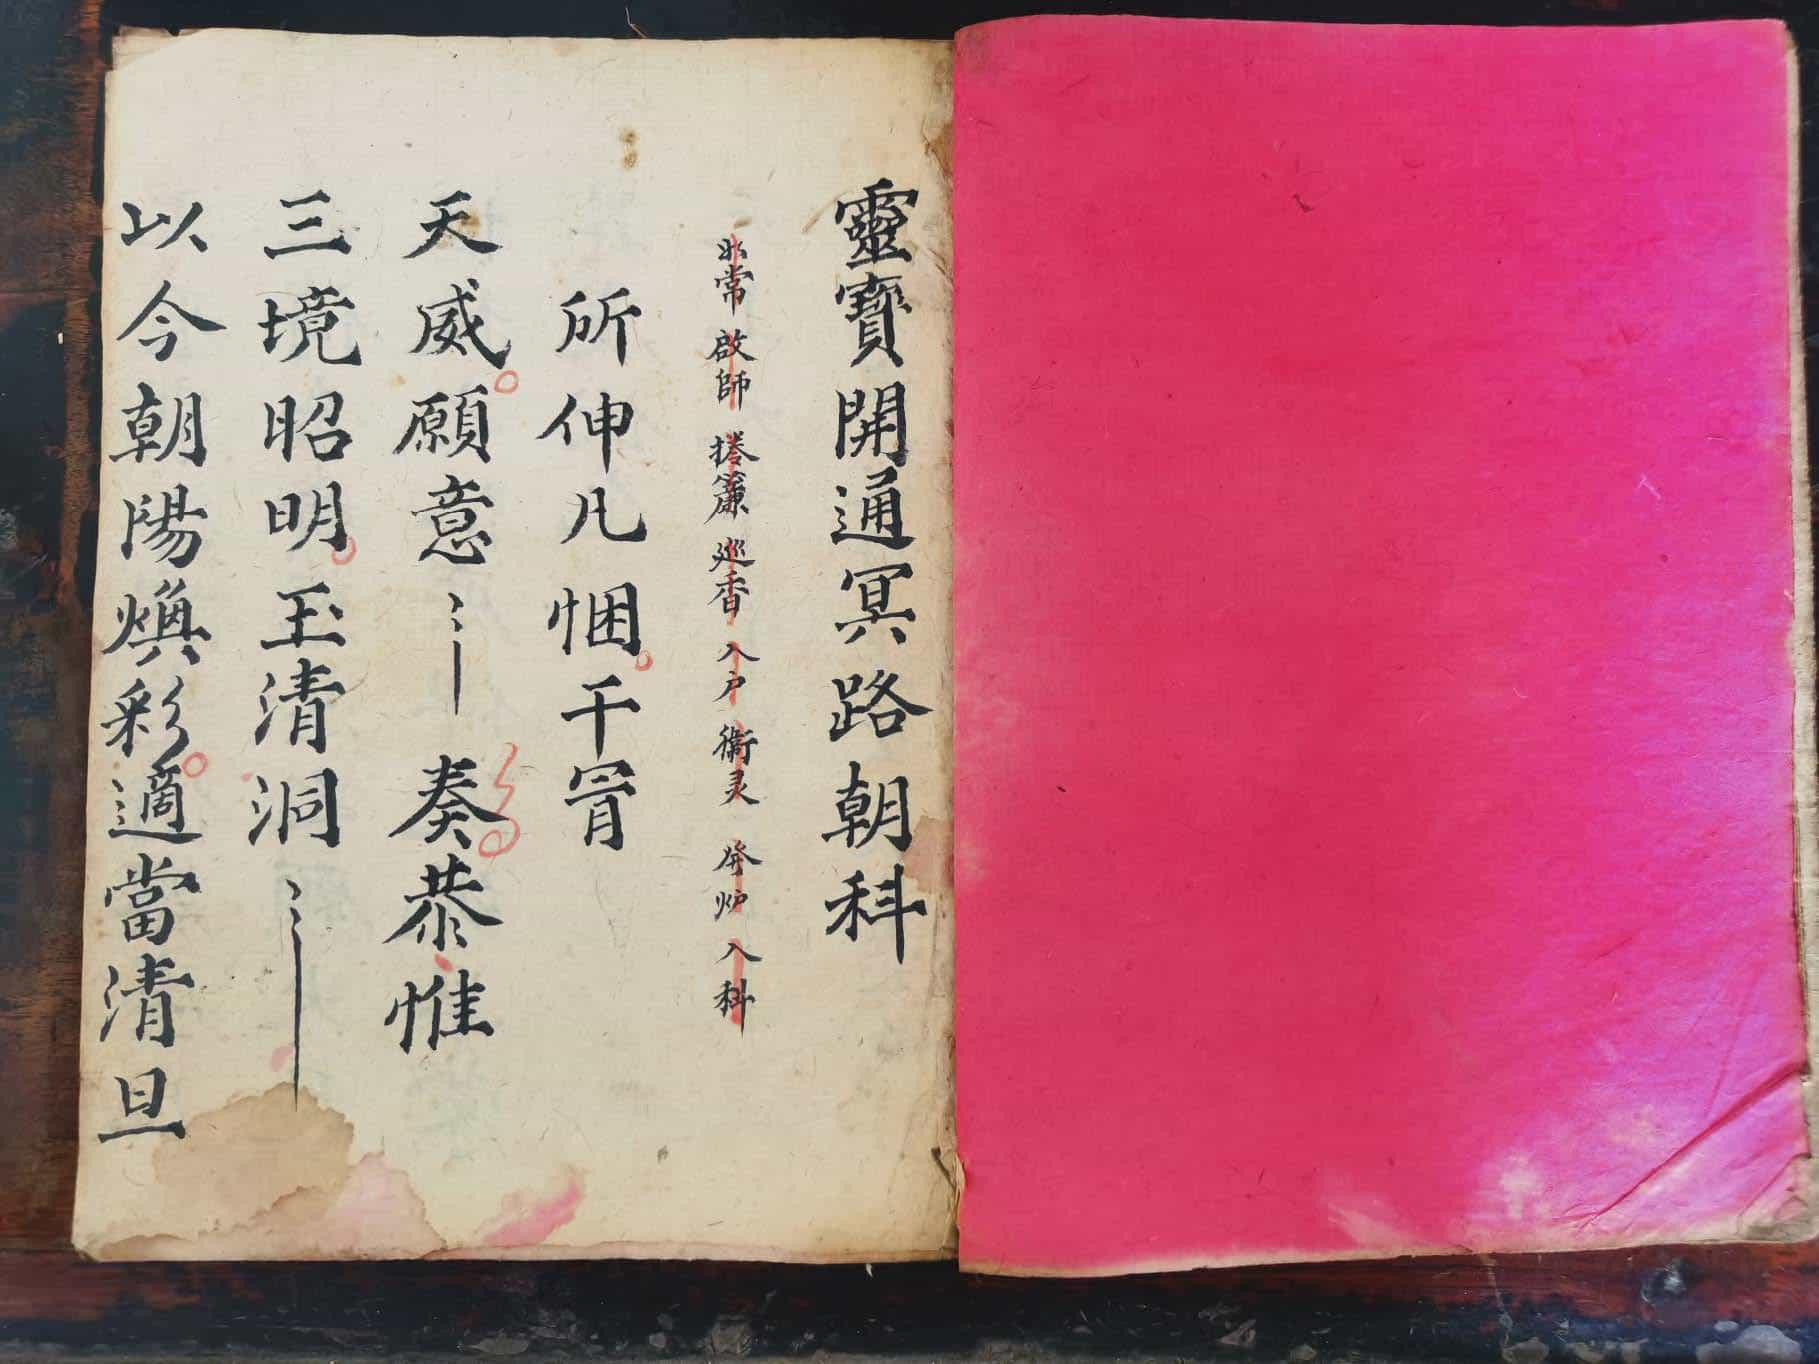 靈寶開通冥路朝科
常啟師 捲簾 巡香 入户 衛灵 發炉 入科
所伸凡悃干冐
天威願意奏恭惟
三境昭明玉清洞
以今朝陽煥彩適當清旦